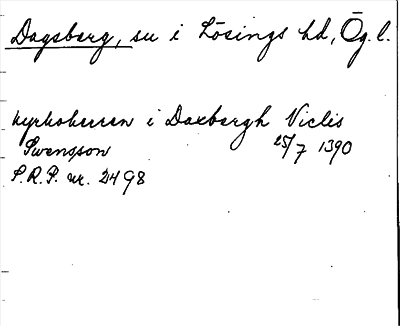 Dagsberg, su i Lösings hd, Ög.l.
kyrkoherren i Daxbergh Niclis
Swensson 25/7 1390
S.R.P. nr. 2498